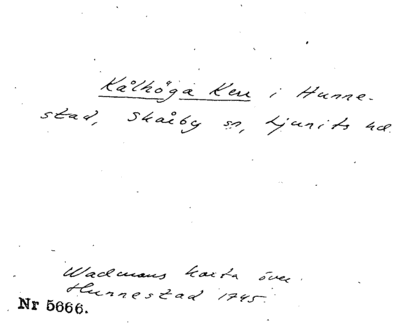 Kålhöga Ken i Hunne-
stad, Skårby sn, Ljunits hd.
Wadmans karta över
Hunnestad 1745.
Nr 5666.